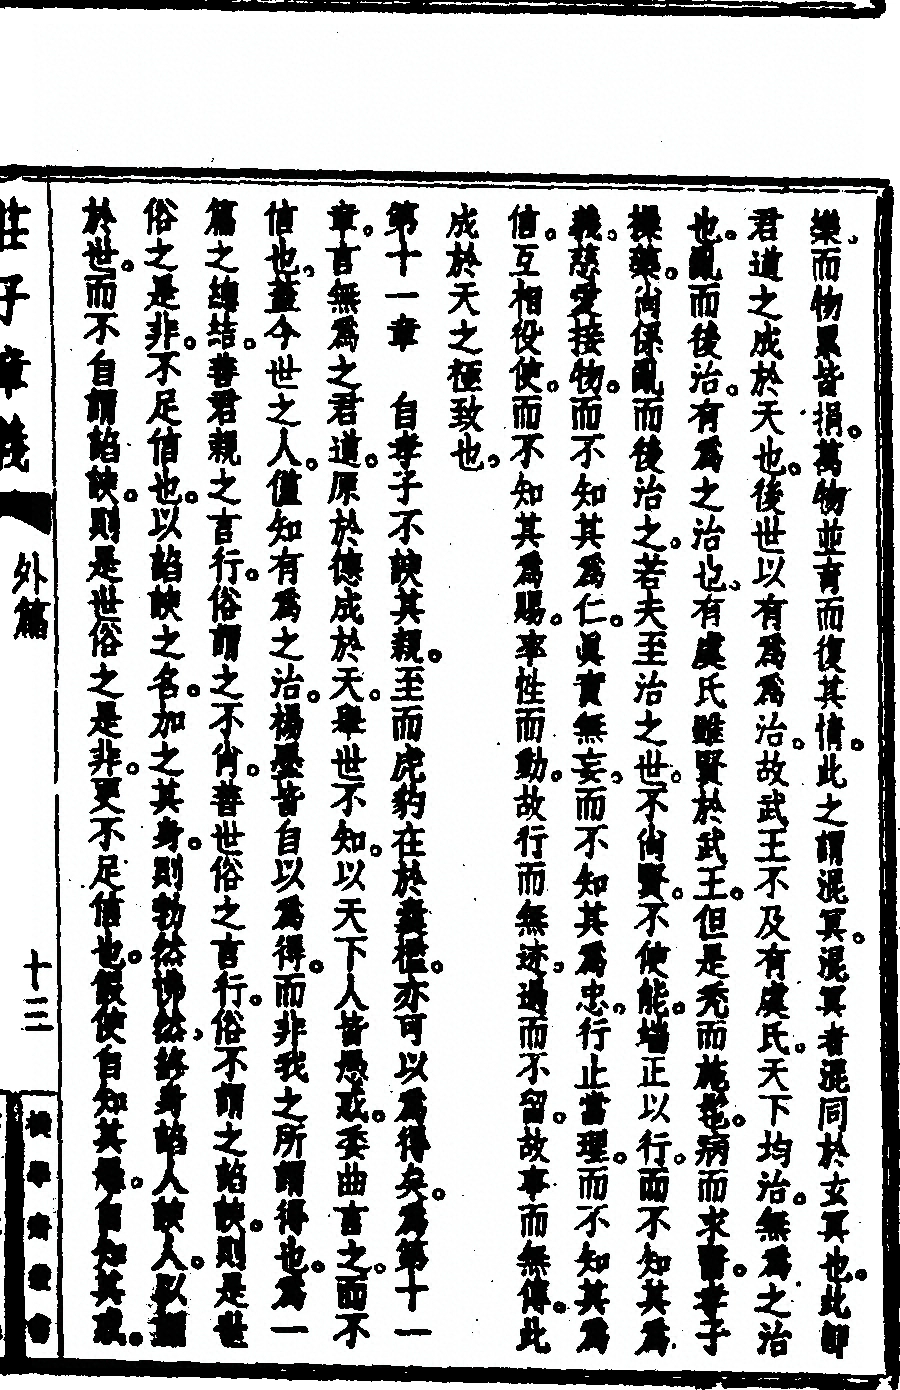 樂而物累皆捐萬物並育而復其情此之謂混冥混冥者混同於玄冥也此即
君道之成於天也後世以有為為治故武王不及有虞氏天下均治無為之治
也亂而後治有為之治也有虞氏雖賢於武王但是禿而施髢病而求醫孝子
操藥尚係亂而後治之若夫至治之世不尚賢不使能端正以行而不知其為
義慈愛接物而不知其為仁真實無妄而不知其為忠行止當理而不知其為
信互相役使而不知其為賜率性而動故行而無迹過而不留故事而無傳此
成於天之極致也
第十一章　自孝子不諛其親至而虎豹在於囊檻亦可以為得矣為第十一
章言無為之君道原於德成於天舉世不知以天下人皆愚惑委曲言之而不
信也蓋今世之人僅知有為之治楊墨皆自以為得而非我之所謂得也為一
篇之總結善君親之言行俗謂之不肖善世俗之言行俗不謂之諂諛則是世
俗之是非不足信也以諂諛之名加之其身則勃然怫然終身諂人諛人以謟
於世而不自謂諂諛則是世俗之是非更不足信也假使自知其愚自知其惑
莊子章義
外篇
十三
橫學齋叢書